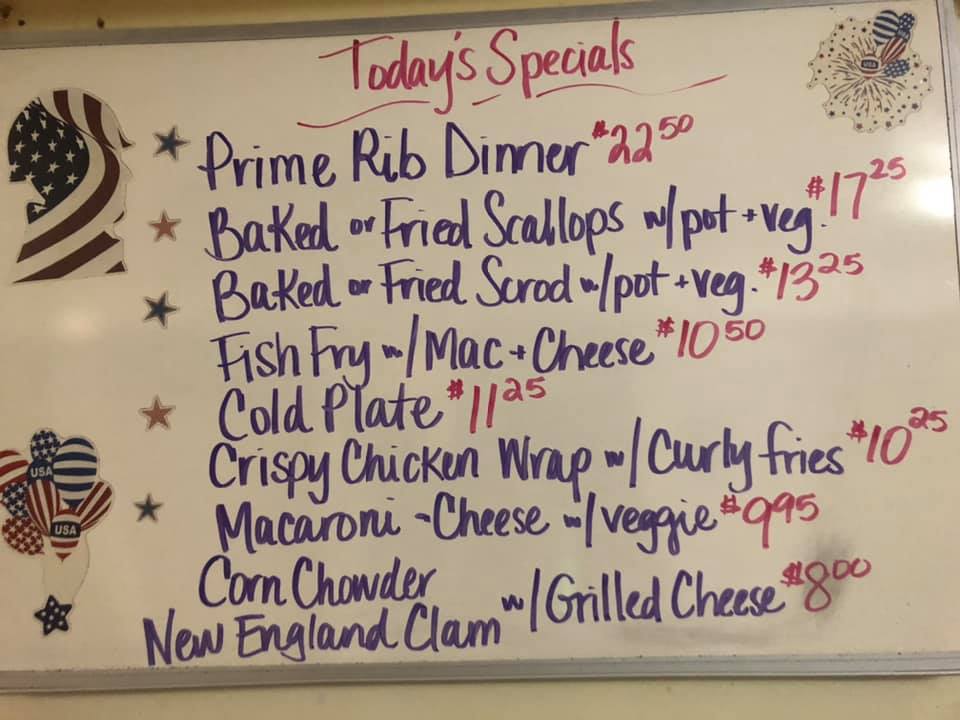 Today's Specials
USA
Prime Rib Dinner $22 50
Baked or Fried Scallops w/pot + veg. $17 25
Baked or Fried Scrod w/pot + veg. $13 25
Fish Fry w/Mac + Cheese $10 50
Cold Plate $11 25
Crispy Chicken Wrap w/Curly fries $10 25
USA
USA
Macaroni - Cheese w/veggie $9 95
Corn Chowder
New England Clam w/Grilled Cheese $8 00